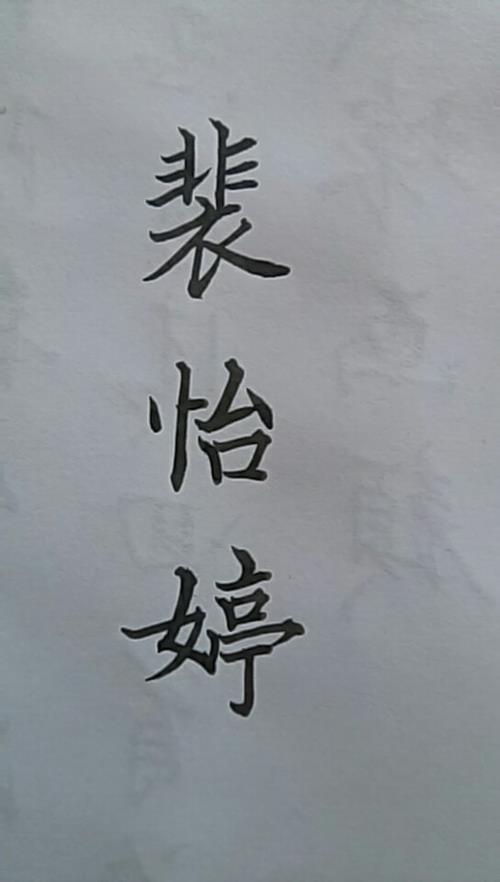 裴怡婷